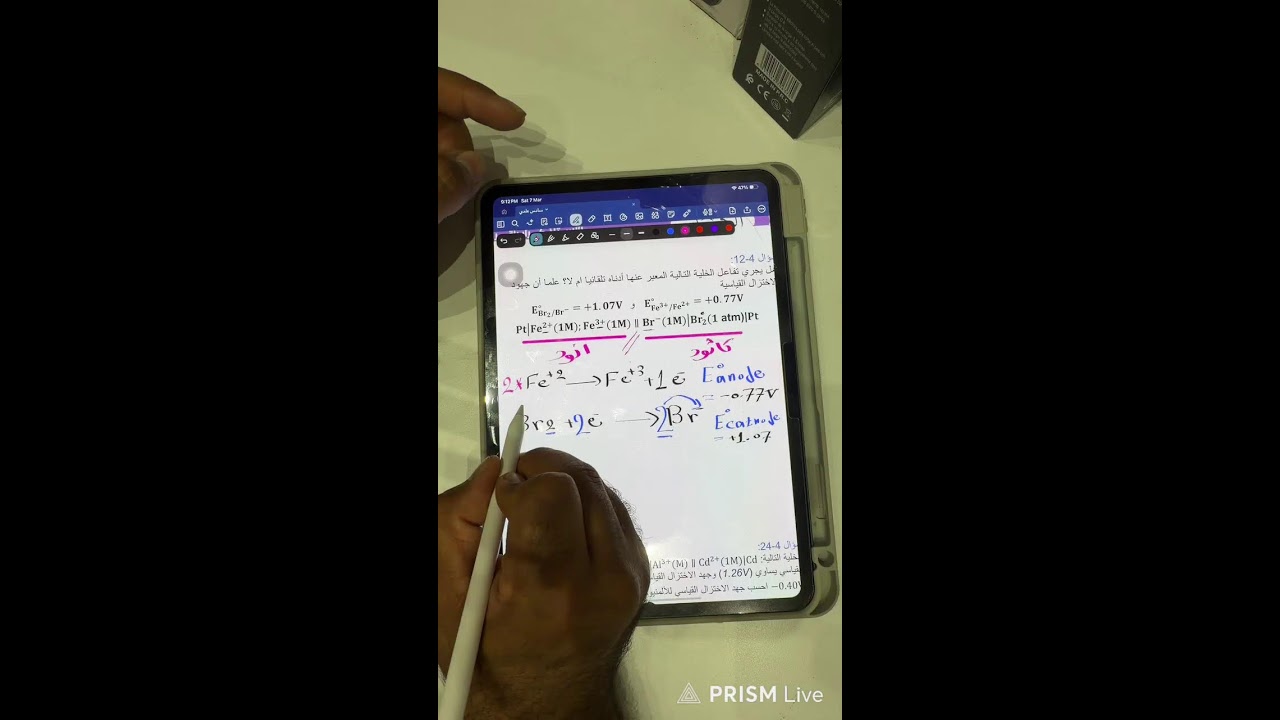 MADE IN P.R.C
CE
9:12 PM Sat 7 Mar
47%
سادس علمي
ؤال 4-12:
ل يجري تفاعل الخلية التالية المعبر عنها أدناه تلقائيا ام لا؟ علما أن جهود
لاختزال القياسية
E°Br₂/Br⁻ = +1.07V و E°Fe³⁺/Fe²⁺ = +0.77V
Pt|Fe²⁺(1M);Fe³⁺(1M) ∥ Br⁻(1M)|Br₂(1 atm)|Pt
انود // كاثود
2* Fe⁺² → Fe⁺³ + 1e⁻ E°anode
= -0.77V
Br₂ + 2e⁻ → 2Br⁻ E°cathode
= +1.07
ؤال 4-24:
خلية التالية: Al³⁺(M) ∥ Cd²⁺(1M)|Cd|
قياسي يساوي (1.26V) وجهد الاختزال القيا
−0.40V احسب جهد الاختزال القياسي للالمنيو
PRISM Live